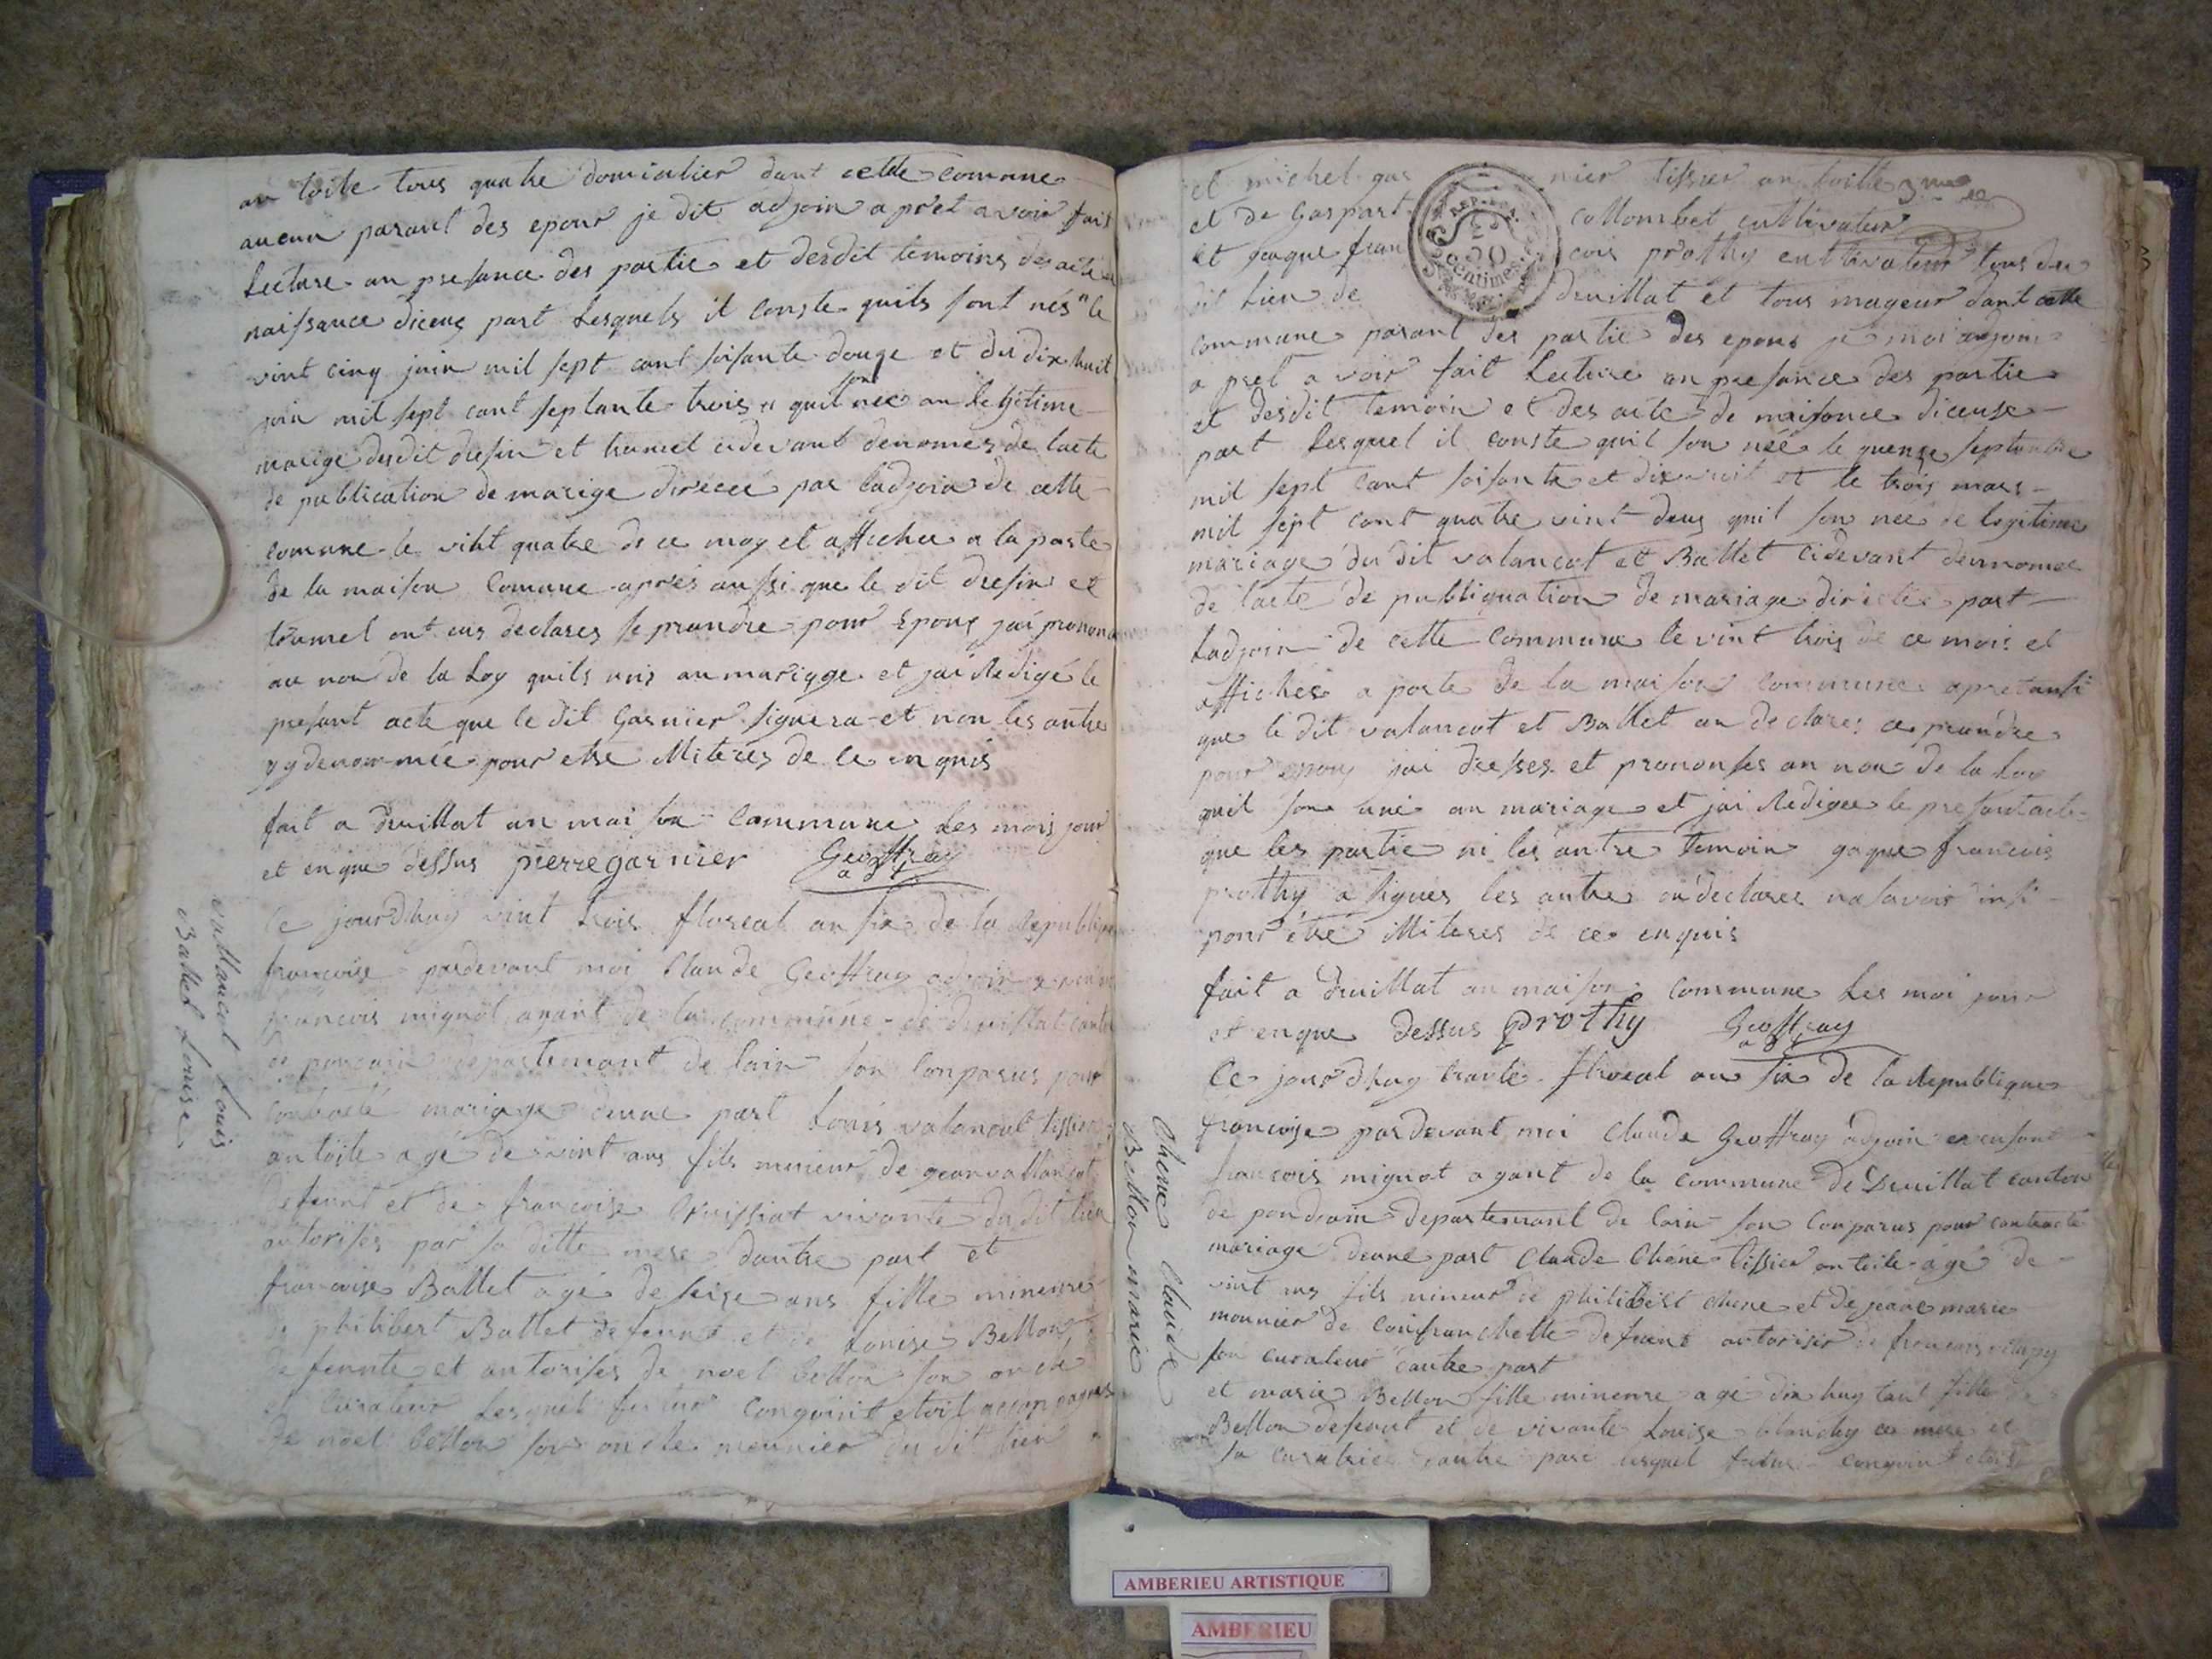 an toile tous quatre domicilier dant cette comune
aucun parant des epour je dit adjoin apret avoir fait
Lecture an presance des partie et desdit temoins des acte
naissance diceux part Lesquels il conste quils sont nés le
vint cinq juin mil sept cant soisante douze et du dix huit
juin mil sept cant septante trois quil son née an legitime
marige desdit dresin et tramel cidevant denomes de lacte
de publication de marige direcée par ladjoin de cette
comune le viht quatre de ce moy et affichee a la porte
de la maison Comune aprés aussi que le dit dresin et
tramel ont eus declares se prandre pour Epoux jái prononc
au non de la Loy quils unis an mariage et jai Redigé le
presant acte que le dit Garnier signera et non les autre
denommée pour etre Miteres de ce enquis
fait a druillat an maison Commune Les mois jour
et en que dessus pierre garnier Geoffray
adj
Vallancot Louis
Ballet Louise
Ce jourdhuy vint trois floreal an six de la Republique
francoise pardevant moi Claude Geoffray adjoin
francois mignot agant de la commune de druillat canton
de departemant de lain son Conparus pour
contracté mariage deune part Louis valancot tissier
an toile agé de vint ans fils mineur de gean vallancot
defeunt et de francoise Cruissiat vivante du dit lieu
autorises par sa ditte mere dautre part et
francoise Ballet agé de seize ans fille mineure
de philibert Ballet defeunt et de Louise Bellon
defeunte et autorises de noel bellon son oncle
et Curateur Lesquel futur Congoint etoit accompagnes
de noel bellon son oncle meunier du dit lieu
et michel gar nier tissier an toille 3me
et de Gaspart Collombet cultivateur
REP. FRA.
50
centimes
et gaque fran cois prothy cultivateur tous du
dit Lieu de druillat et tous mageur dant cette
commune parant des partie des epous je moi adjoin
a pret avoir fait Lecture an presance des partie
et desdit temoin et des acte de naisance diceuse
part Lesquel il conste quil son néé le quenze septembre
mil sept cant soisante et dix huit et le trois mars
mil sept cant quatre vint deux quil son nee de legitime
mariage du dit valancot et Ballet cidevant dennomee
de lacte de publiquation de mariage directée part
Ladjoin de cette Commune le vint trois de ce mois et
affichée a porte de la maison commune apret ausi
que le dit valancot et Ballet an declares ce prandre
pour epoux jai dresses et prononses an non de la Loy
quil son unie an mariage et jai Redigee le presant acte
que les partie ni les autre temoin gaque francois
prothy a signes les autre on declares na savoir
pour étre Miteres de ce enquis
fait a druillat an maison commune Les moi jour
et en que dessus prothy Geoffray
adj
Chene Claude
Bellon marie
Ce jourdhuy trante floreal an six de la Republique
francoise pardevant moi Claude Geoffray adjoin
francois mignot agant de la commune de Druillat canton
de pondain departemant de lain son Conparus pour contracté
mariage deune part Claude Chéne tissier an toile agé de
vint ans fils mineur de philibert chene et de jeane marie
mounier de Confranchette defeunt autoriser de francois
son curateur dautre part
et marie Bellon fille mineure agé dix huy tant fille
Bellon defeunt et de vivante Louise blanchy ce mere et
sa curatrice dautre part Lesquel futur congoint etois
AMBERIEU ARTISTIQUE
AMBERIEU